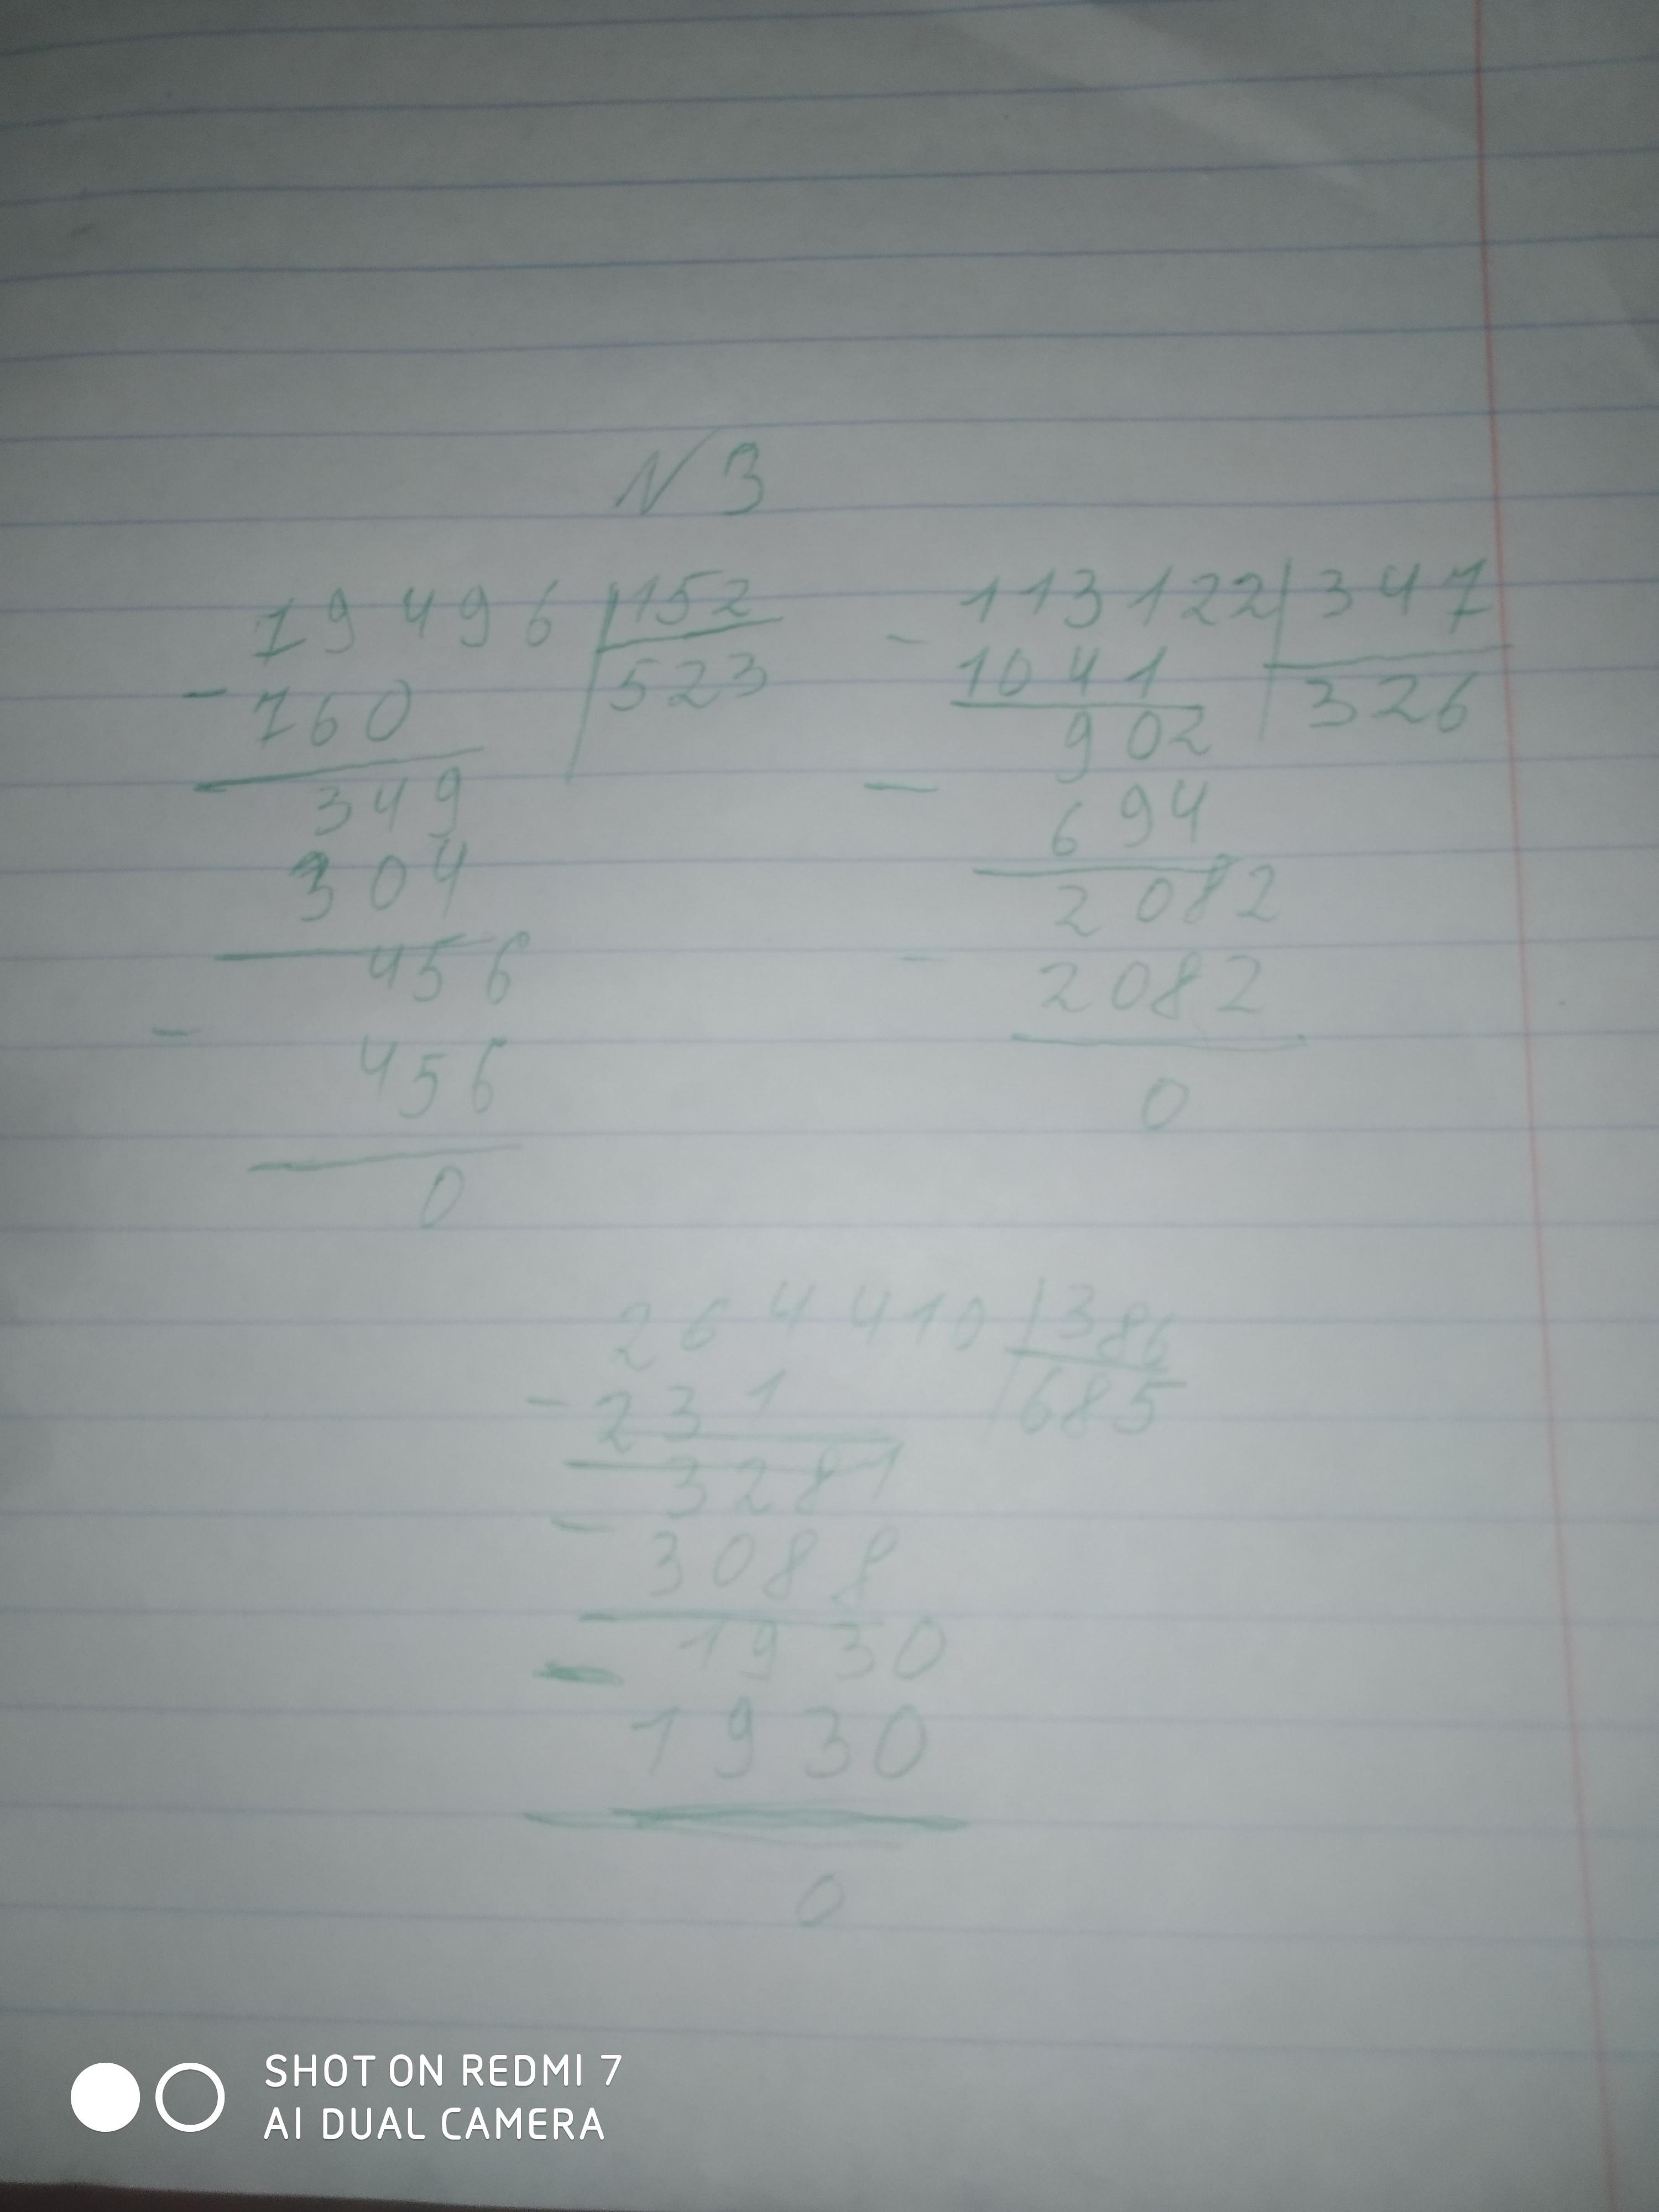 N 3
19 496 152
- 760 523
349
304
456
- 456
0
113 122 347
- 1041 326
902
- 694
2082
- 2082
0
264 410 386
- 231 685
3281
- 3088
1930
- 1930
0
SHOT ON REDMI 7
AI DUAL CAMERA